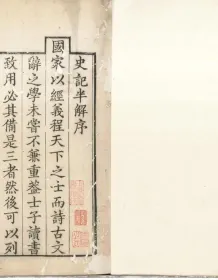 史記半解序
國家以經義程天下之士而詩古文
辭之學未嘗不兼重蓋士子讀書
致用必其備是三者然後可以列